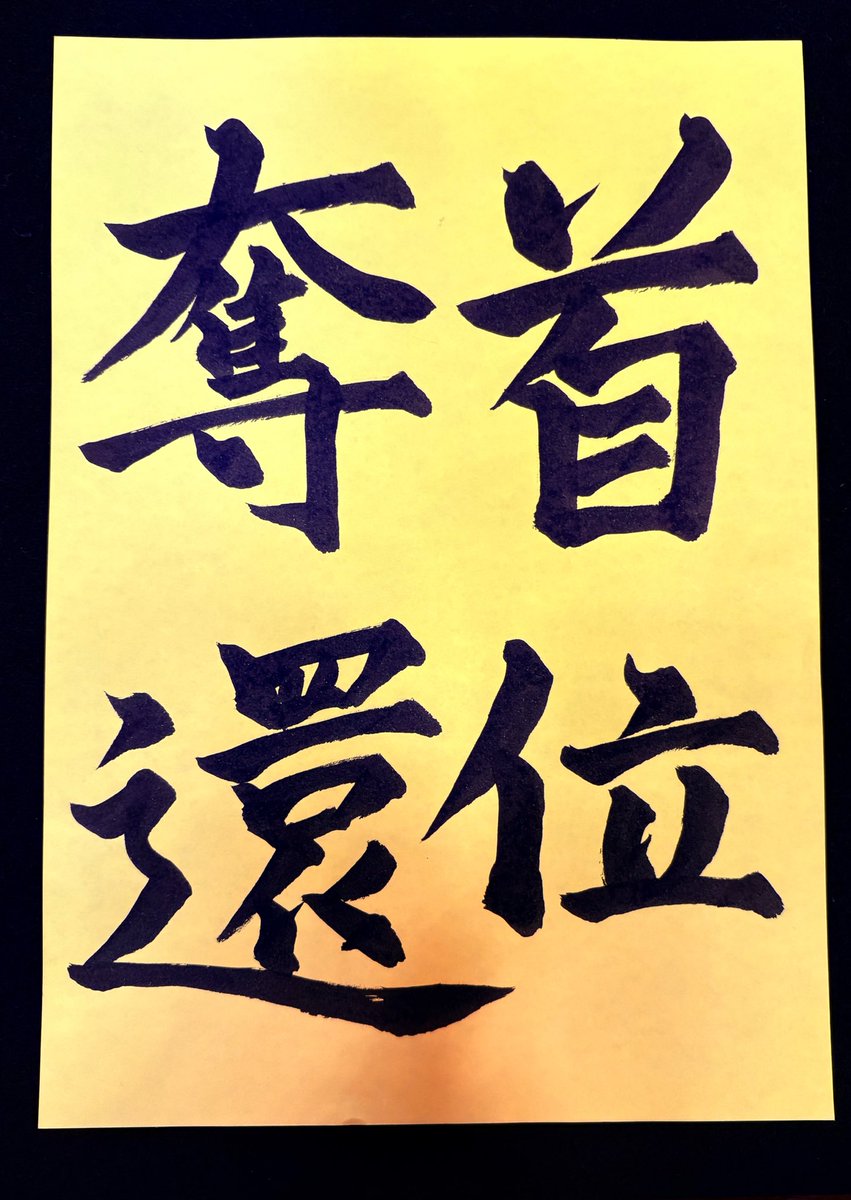 首位
奪還